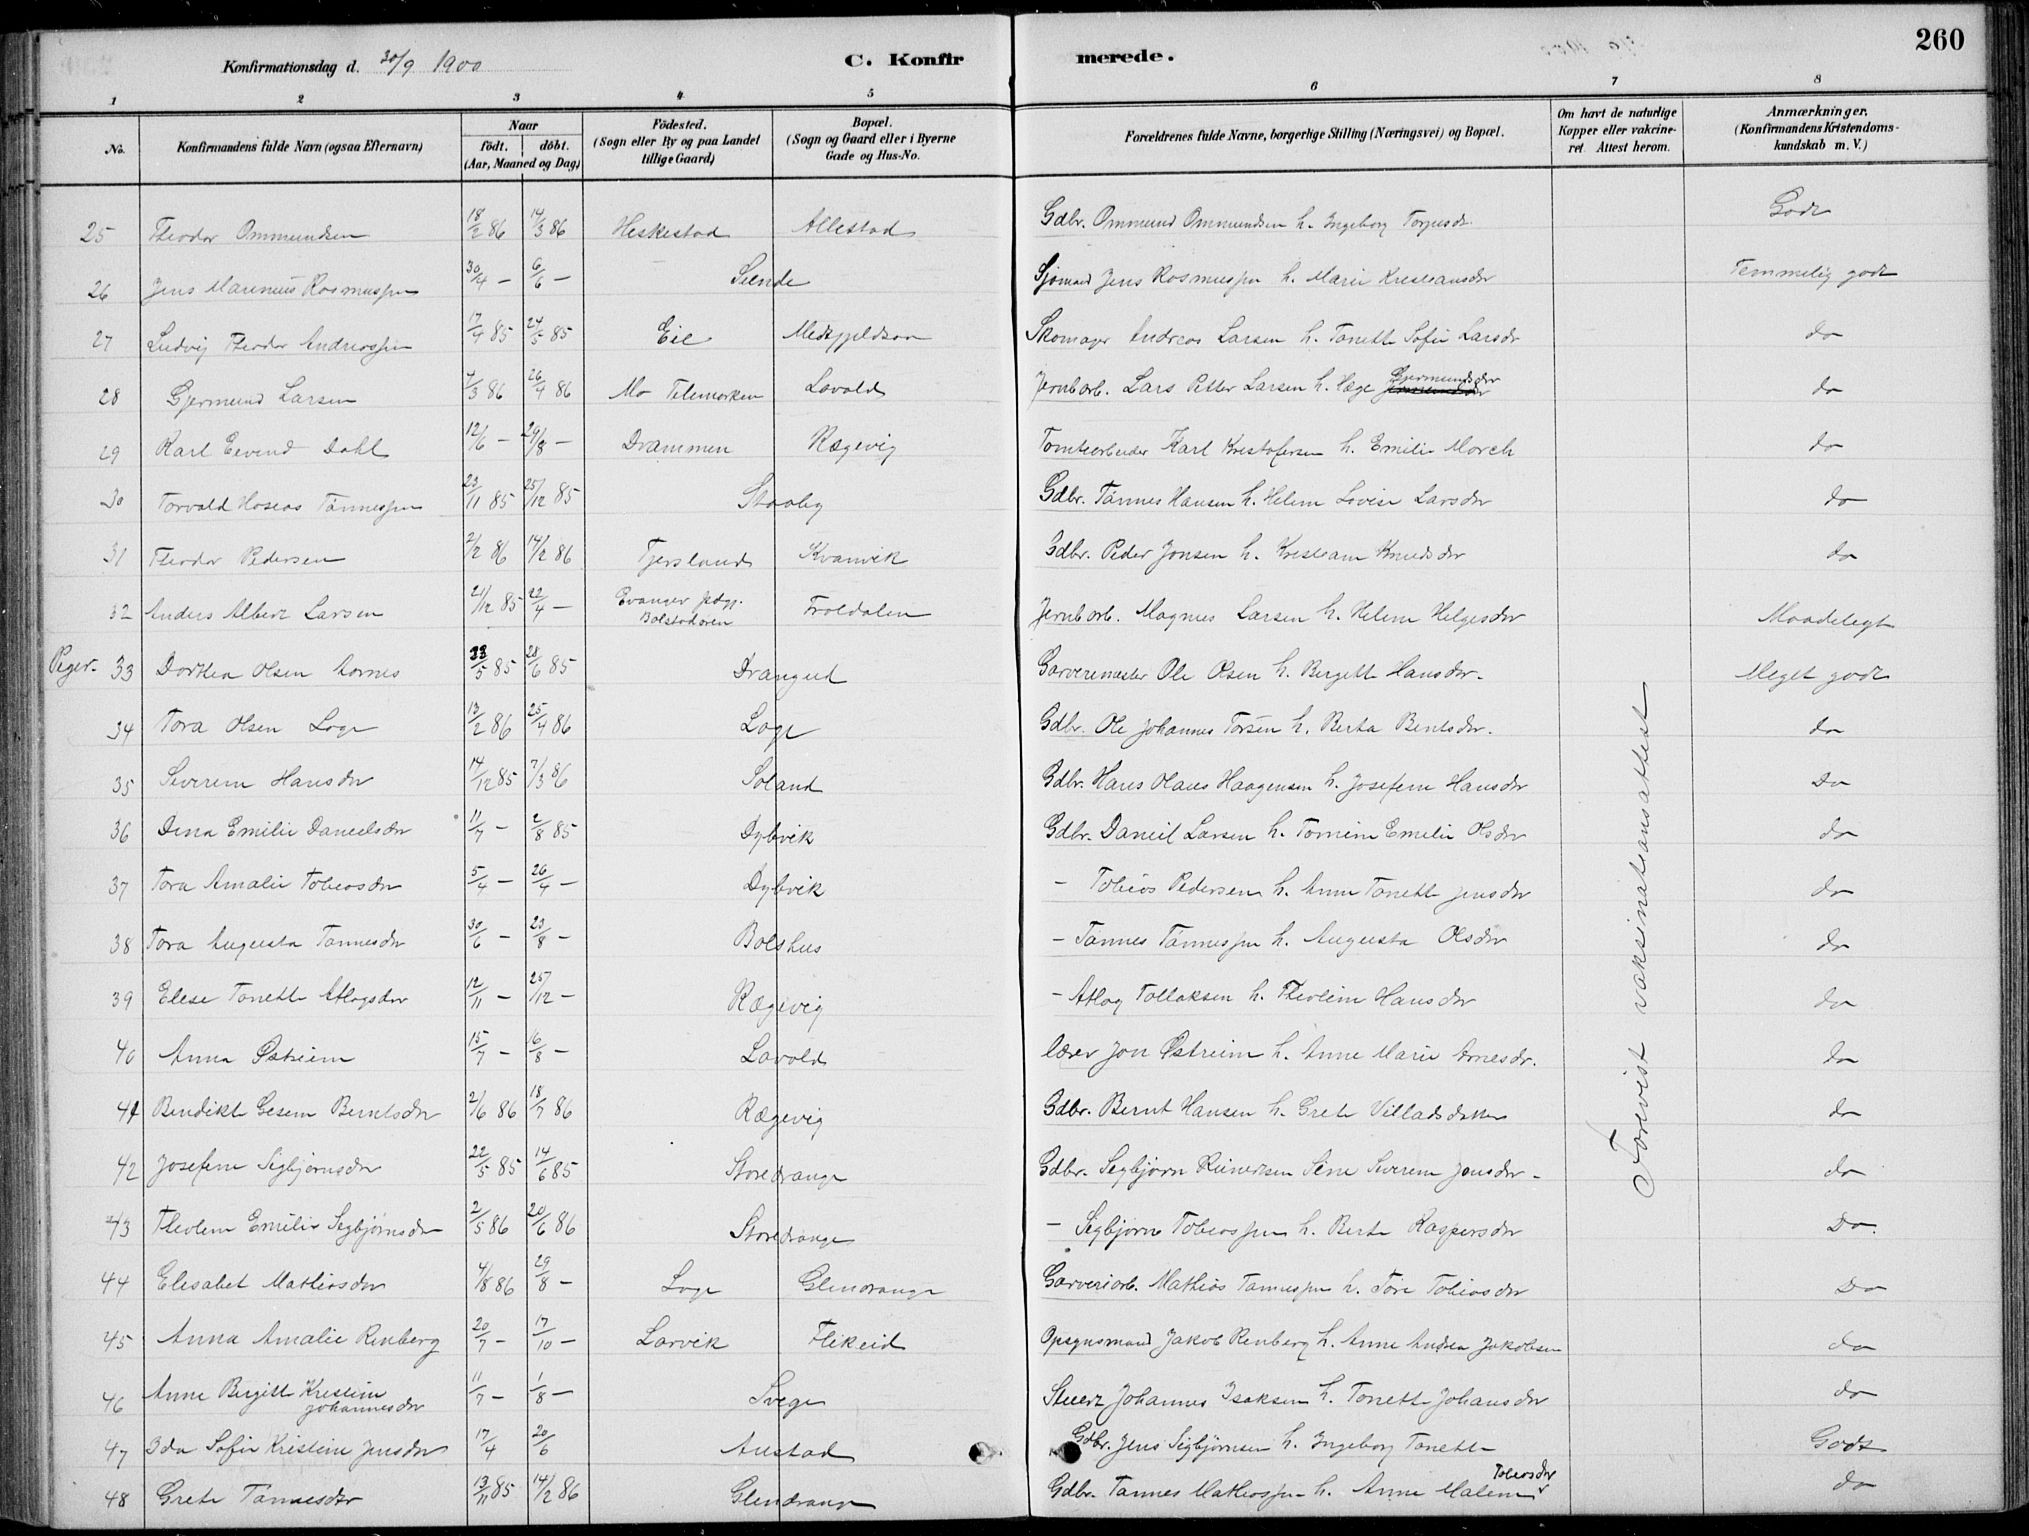 Konfirmationsdag d. 30/9 1900 C. Konfirmerede. 260
1 2 3 4 5 6 7 8
No. Konfirmandens fulde Navn (ogsaa Efternavn) Naar født. døbt. (Aar, Maaned og Dag) Fødested. (Sogn eller By og paa Landet tillige Gaard) Bopæl. (Sogn og Gaard eller i Byerne Gade og Hus-No. Forældrenes fulde Navne, borgerlige Stilling (Næringsvei) og Bopæl. Om havt de naturlige Kopper eller vakcineret. Attest herom. Anmærkninger. (Konfirmandens Kristendomskundskab m. V.)
25 Theodor Ommundsen 18/2 86 14/3 86 Heskestad Allestad Gdbr. Ommund Ommundsen h. Ingeborg Torgersdr Godt
26 Jens Marenius Rasmussen 30/4 — 6/6 — Seende Sjømand Jens Rasmussen h. Marie Kristiansdr Temmelig godt
27 Ludvig Theodor Andreassen 17/4 85 24/5 85 Eie Skomager Andreas Larsen h. Tonette Sofie Larsdr do
28 Gjermund Larsen 7/3 86 26/4 86 Mo Telemarken Lavold Jernbarb. Lars Petter Larsen h. Hæge Gjermundsdr do
29 Karl Eevind Dahl 12/6 — 29/8 — Drammen Rægevig Tomtearbeider Karl Kristofersen h. Emilie Morch do
30 Torvald Hoseas Tønnessen 23/11 85 25/12 85 Staaleg Gdbr. Tønnes Hansen h. Helene Lovise Larsdr do
31 Theodor Pedersen 2/2 86 14/2 86 Tjersland Kvanvik Gdbr. Peder Jonsen h. Kristiane Knudsdr do
32 Anders Albert Larsen 21/12 85 22/4 — Evanger prdgj. Bolstadøren Froldalen Jernbarb. Magnus Larsen h. Helene Helgesdr Maadelegt
Piger. 33 Dorthea Olsen Aarnes 5 85 28/6 85 Drangeid Garverimester Ole Olsen h. Bergitte Hansdr. Meget godt
34 Tora Olsen Loge 13/2 86 25/4 86 Loge Gdbr. Ole Johannes Torsen h. Berta Bentsdr. do
35 Severine Hansdr 14/12 85 7/3 86 Soland Gdbr. Hans Olaus Haagensen h. Josefine Hansdr Do
36 Dina Emilie Danielsdr 11/7 — 2/8 85 Dybvik Gdbr. Daniel Larsen h. Tomine Emilie Olsdr do
37 Tora Amalie Tobiasdr 5/4 — 26/4 — Dybvik — Tobias Pedersen h. Anne Tonette Jensdr do
38 Tora Augusta Tønnesdr 30/6 — 23/8 — Bolshus — Tønnes Tønnessen h. Augusta Olsdr do
39 Elise Tonette Atlogsdr 12/11 — 25/12 — Rægevig — Atlog Tollaksen h. Theoline Hansdr do
40 Anna Østreim 15/7 — 16/8 — Lavold lærer Jon Østreim h. Anne Marie Arnesdr. do
41 Bendikte Gesine Berntsdr 2/6 86 18/7 86 Rægevig Gdbr. Bernt Hansen h. Grete Villadsdatter do
42 Josefine Sigbjørnsdr 22/5 85 14/6 85 Storedrange Gdbr. Segbjørn Reinertsen Sine Severine Jensdr — do
43 Theoline Emilie Segbjørnsdr 2/5 86 20/6 86 Storedrange — Segbjørn Tobiassen h. Berte Kaspersdr Do.
44 Elesabet Mathiasdr 4/8 86 29/8 — Loge Glendrange Garveriarb. Mathias Tønnessen h. Tore Tobiasdr Do
45 Anna Amalie Renberg 20/7 — 17/10 — Larvik Flikeid Opsynsmand Jakob Renberg h. Anne Andrea Jakobsen do
46 Anne Birgitte Kristine Johannesdr 11/7 — 1/8 — Svege Johannes Isaksen h. Tonette Johansdr do
47 Ida Sofie Kristine Jensdr 17/4 20/6 Austad Gdbr. Jens Sigbjørnsen h. Ingeborg Tonette — Godt
48 Grete Tønnesdr 13/11 85 14/2 86 Glendrange Gdbr. Tønnes Mathiassen h. Anne Malene Tobiasdr do
Forevist vaksinationsattest